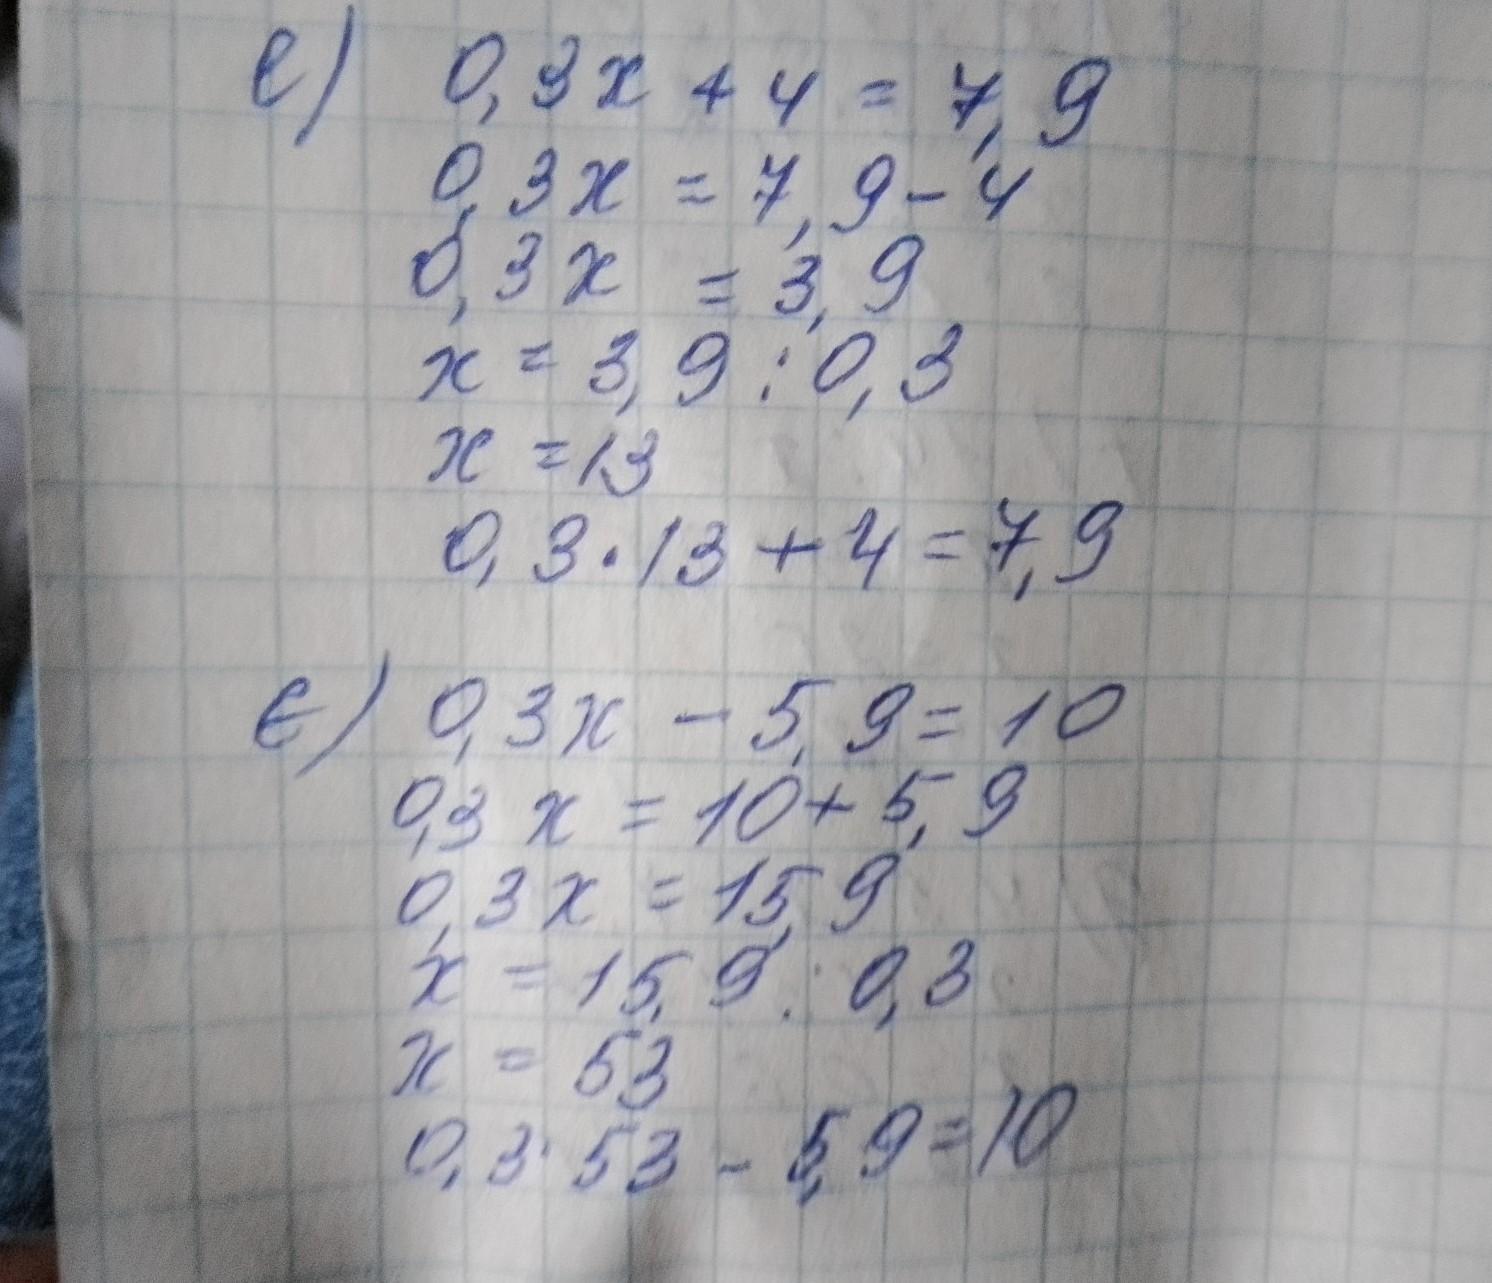 е) 0,3x + 4 = 7,9
0,3x = 7,9 - 4
0,3x = 3,9
x = 3,9 : 0,3
x = 13
0,3 · 13 + 4 = 7,9
є) 0,3x - 5,9 = 10
0,3x = 10 + 5,9
0,3x = 15,9
x = 15,9 : 0,3
x = 53
0,3 · 53 - 5,9 = 10